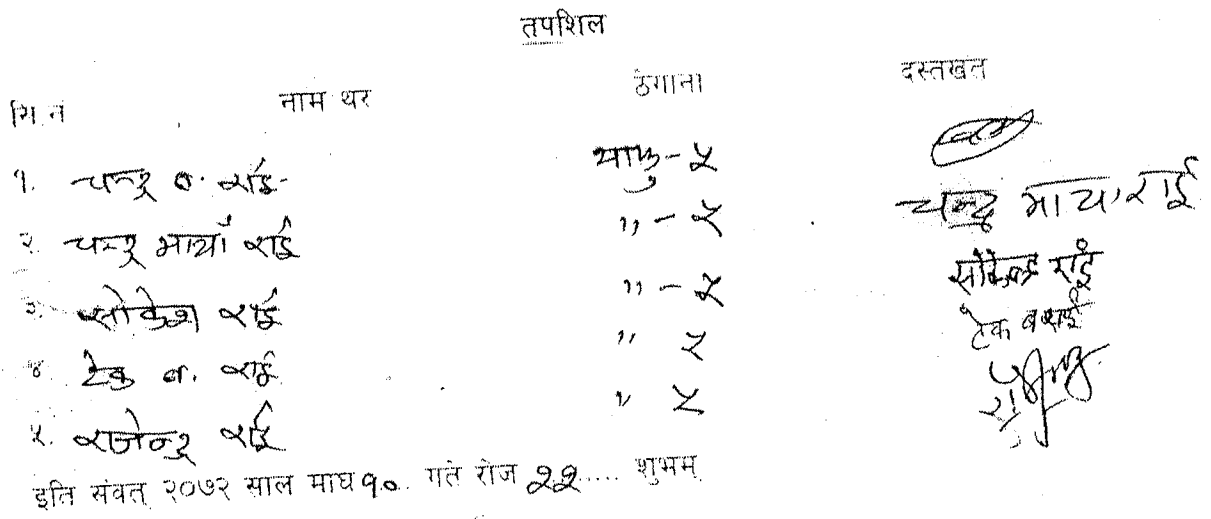 तपशिल
सि.नं नाम थर ठेगाना दस्तखत
१. चन्द्र ब. राई याफु-५
२. चन्द्र माया राई ,,-५ चन्द्र माया राई
३. राई ,,-५ राई
४ टेक ब. राई ,, ५ टेक ब राई
५. राजेन्द्र राई ,, ५
इति संवत् २०७२ साल माघ १०.. गते रोज २२..... शुभम्